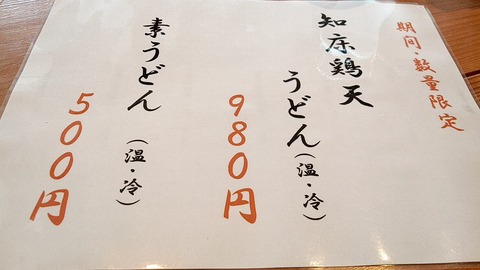 期間・数量限定
知床鶏天
うどん(温・冷)
980円
素うどん(温・冷)
500円